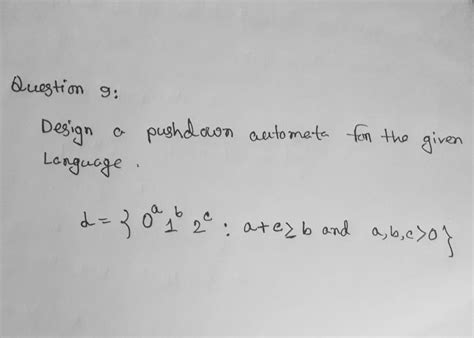 Question 9:
Design a pushdown autometa for the given
Language.
L = { 0^a 1^b 2^c : a+c ≥ b and a,b,c>0 }